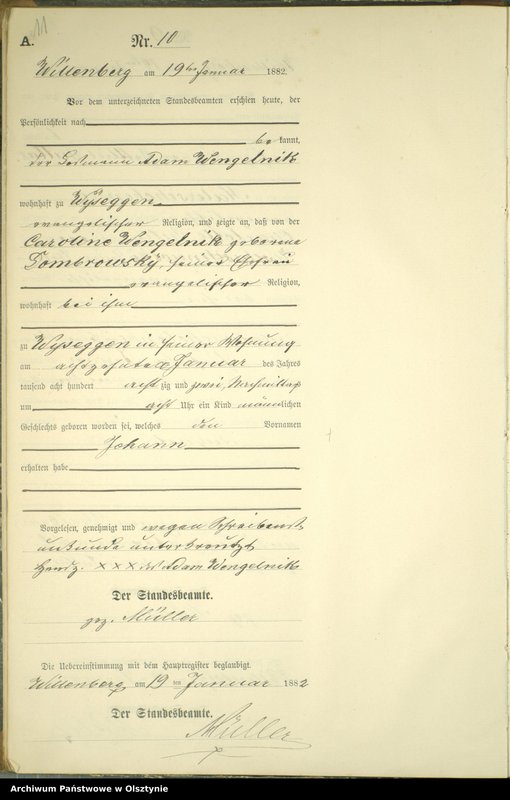 11
A.
Nr. 10
Wittenberg am 19ten Januar 1882.
Vor dem unterzeichneten Standesbeamten erschien heute, der
Persönlichkeit nach
be kannt,
der Losmann Adam Wengelnik
wohnhaft zu Wyseggen
evangelischer Religion, und zeigte an, daß von der
Caroline Wengelnik geborene
Dombrowsky, seiner Ehefrau
evangelischer Religion,
wohnhaft bei ihm
zu Wyseggen in seiner Wohnung
am achtzehnten Januar des Jahres
tausend acht hundert acht zig und zwei, Vormittags
um acht Uhr ein Kind männlichen
Geschlechts geboren worden sei, welches den Vornamen
Johann
erhalten habe
Vorgelesen, genehmigt und wegen Schreibens
unkunde unterkreuzt
Handz. XXX des Adam Wengelnik
Der Standesbeamte.
gez. Müller
Die Uebereinstimmung mit dem Hauptregister beglaubigt.
Wittenberg am 19 ten Januar 1882
Der Standesbeamte.
Müller
Archiwum Państwowe w Olsztynie